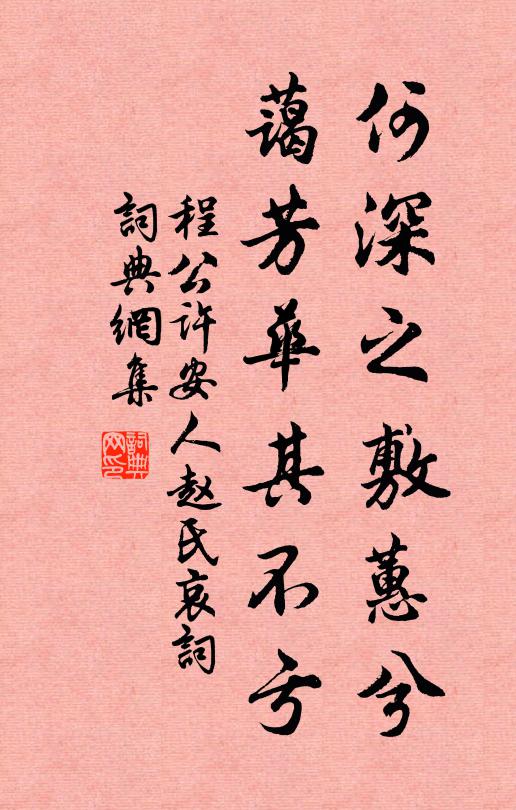 何深之敷蕙兮
藹芳華其不亏
程公许安人赵氏哀詞
詞典網集
詞典网印